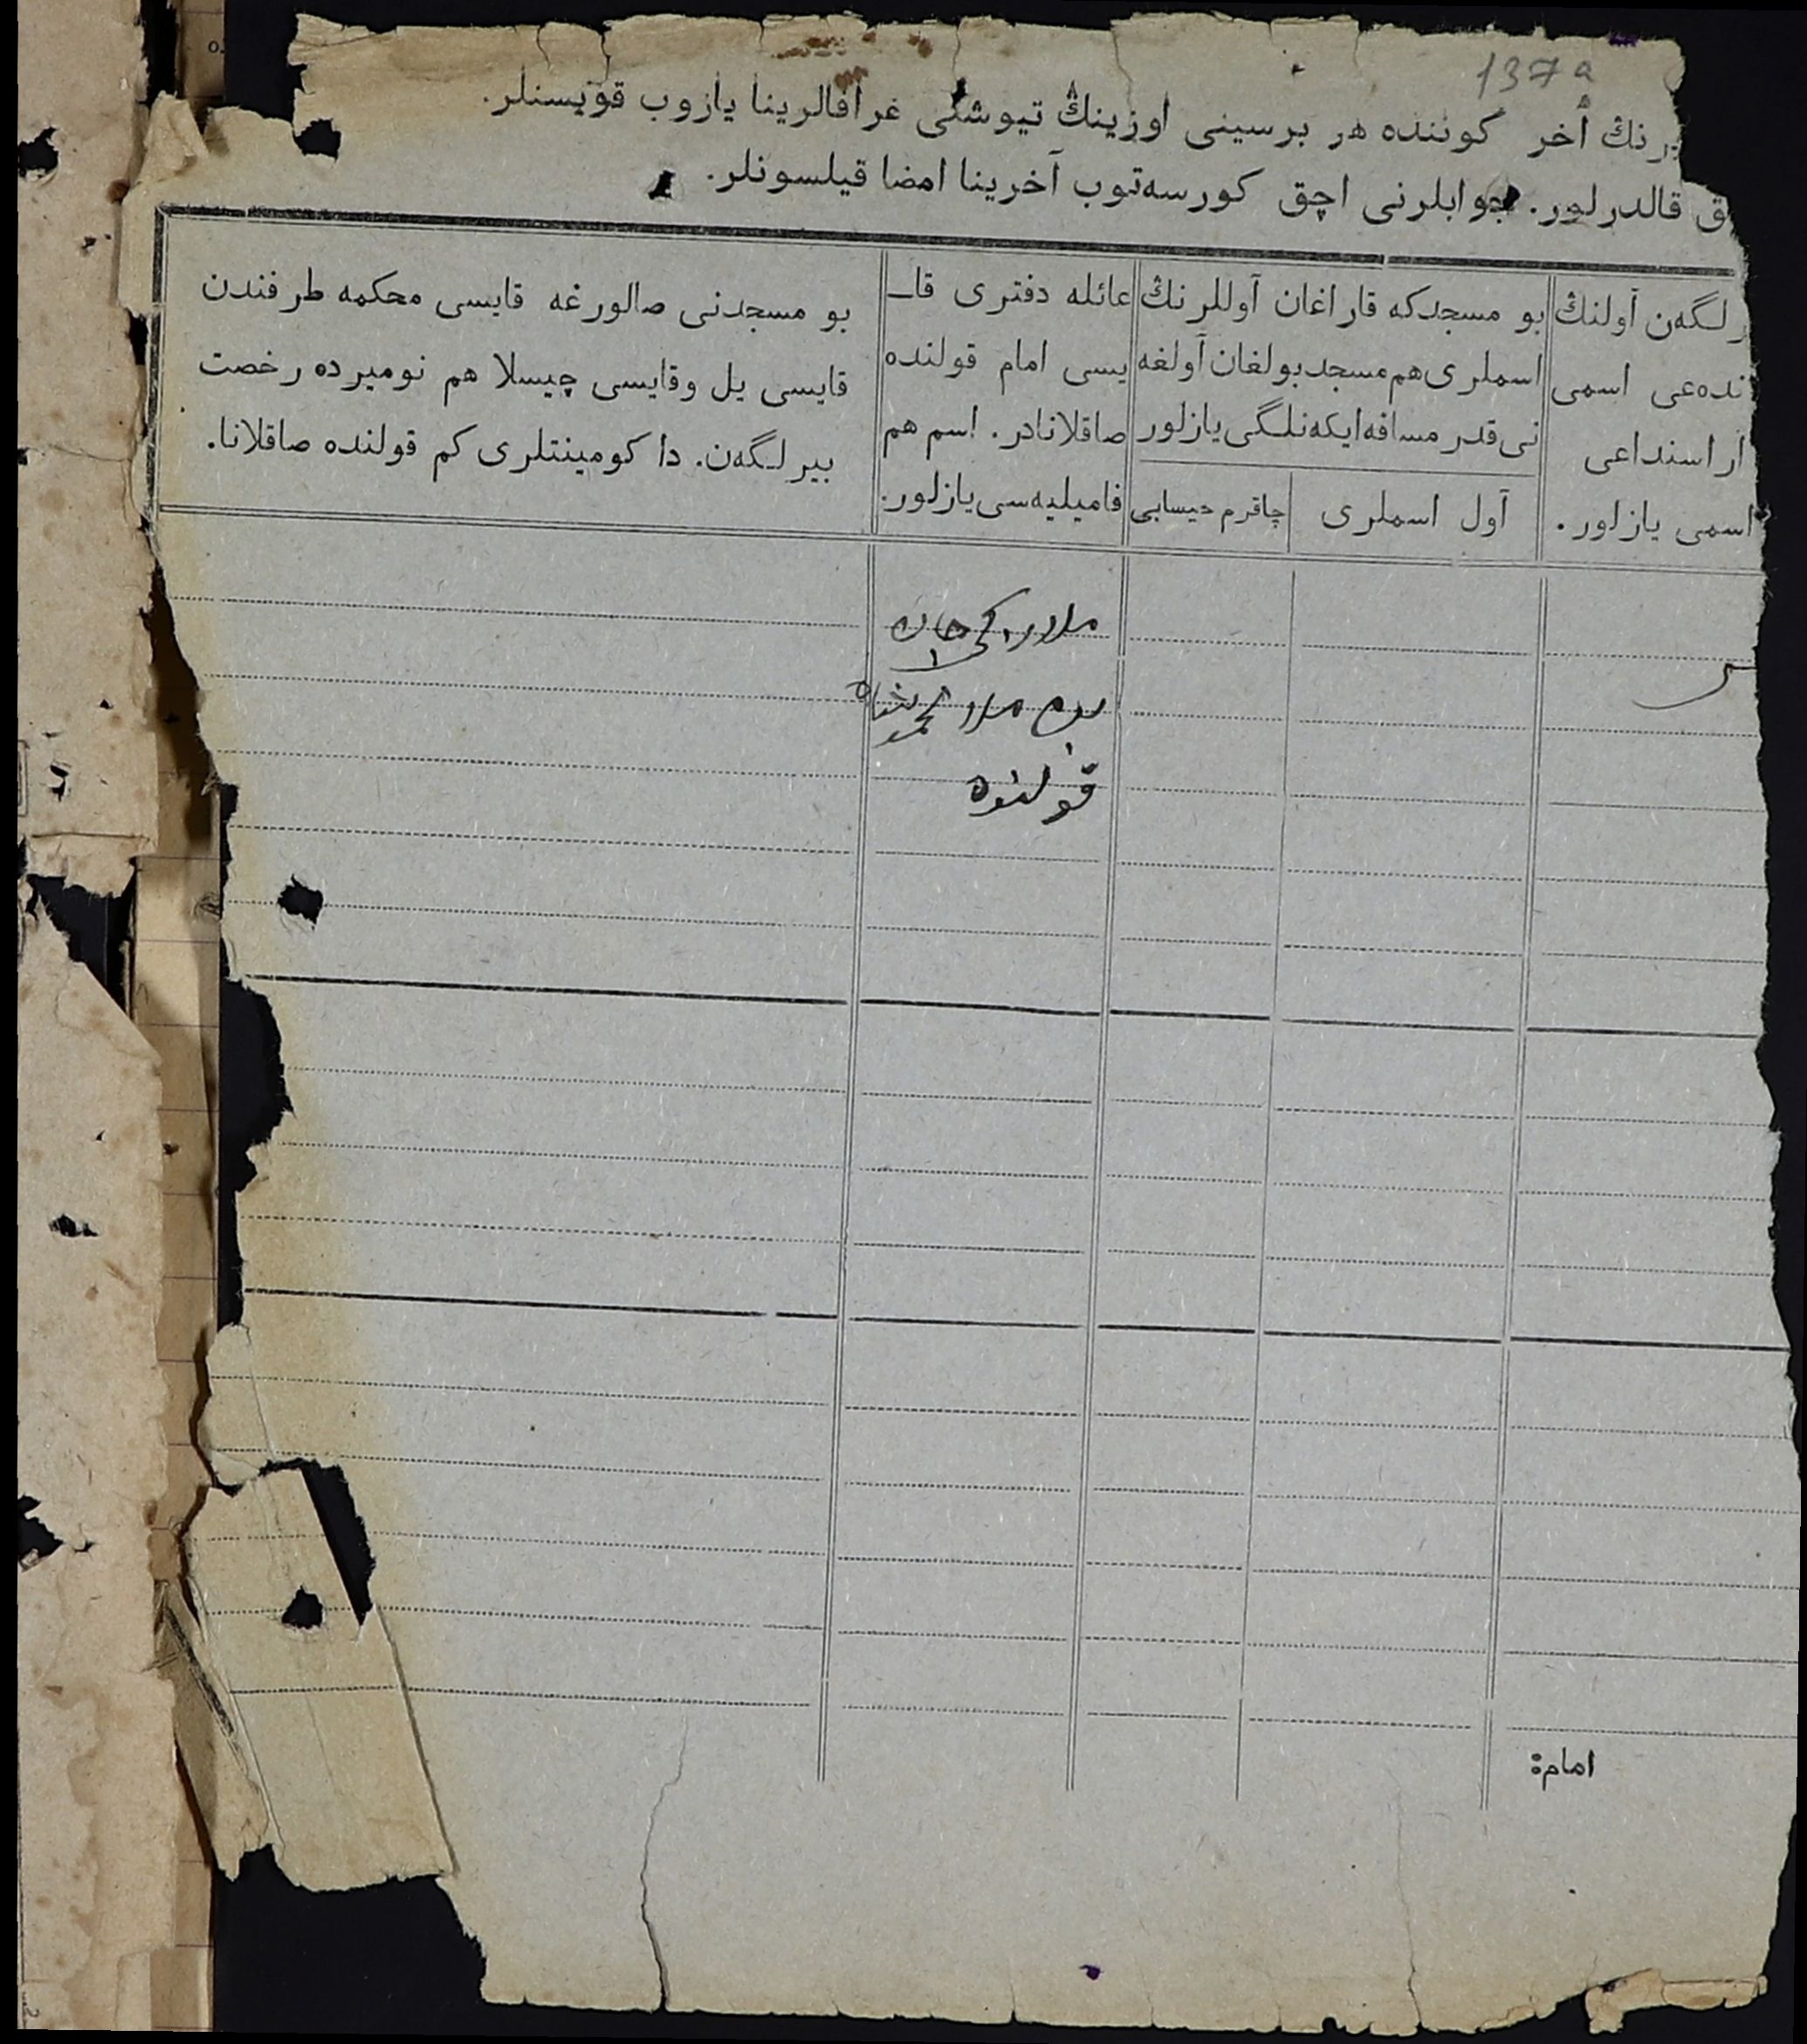 137a
رنڭ آخر كوننده هر برسینی اوزینڭ تیوشلی غرافالرینا یازوب قویسنلر.
ق قالدرلور. جوابلرنی اچق كورسه‌توب آخرینا امضا قیلسونلر.
رلگه‌ن آولنڭ
نده‌عی اسمی
اراسنداعی
اسمی یازلور.
بو مسجدكه قاراغان آوللرنڭ
اسملری هم مسجد بولغان آولغه
نی قدر مسافه ایكه‌نلگی یازلور
آول اسملری
چاقرم حیسابی
عائله دفتری قا‍ـ
یسی امام قولنده
صاقلانادر. اسم هم
فامیلیه‌سی یازلور.
بو مسجدنی صالورغه قایسی محكمه طرفندن
قایسی یل وقایسی چیسلا هم نومیرده رخصت
بیرلگه‌ن. دا كومینتلری كم قولنده صاقلانا.
ملا
ملا محمدشاه
قولنده
امام: